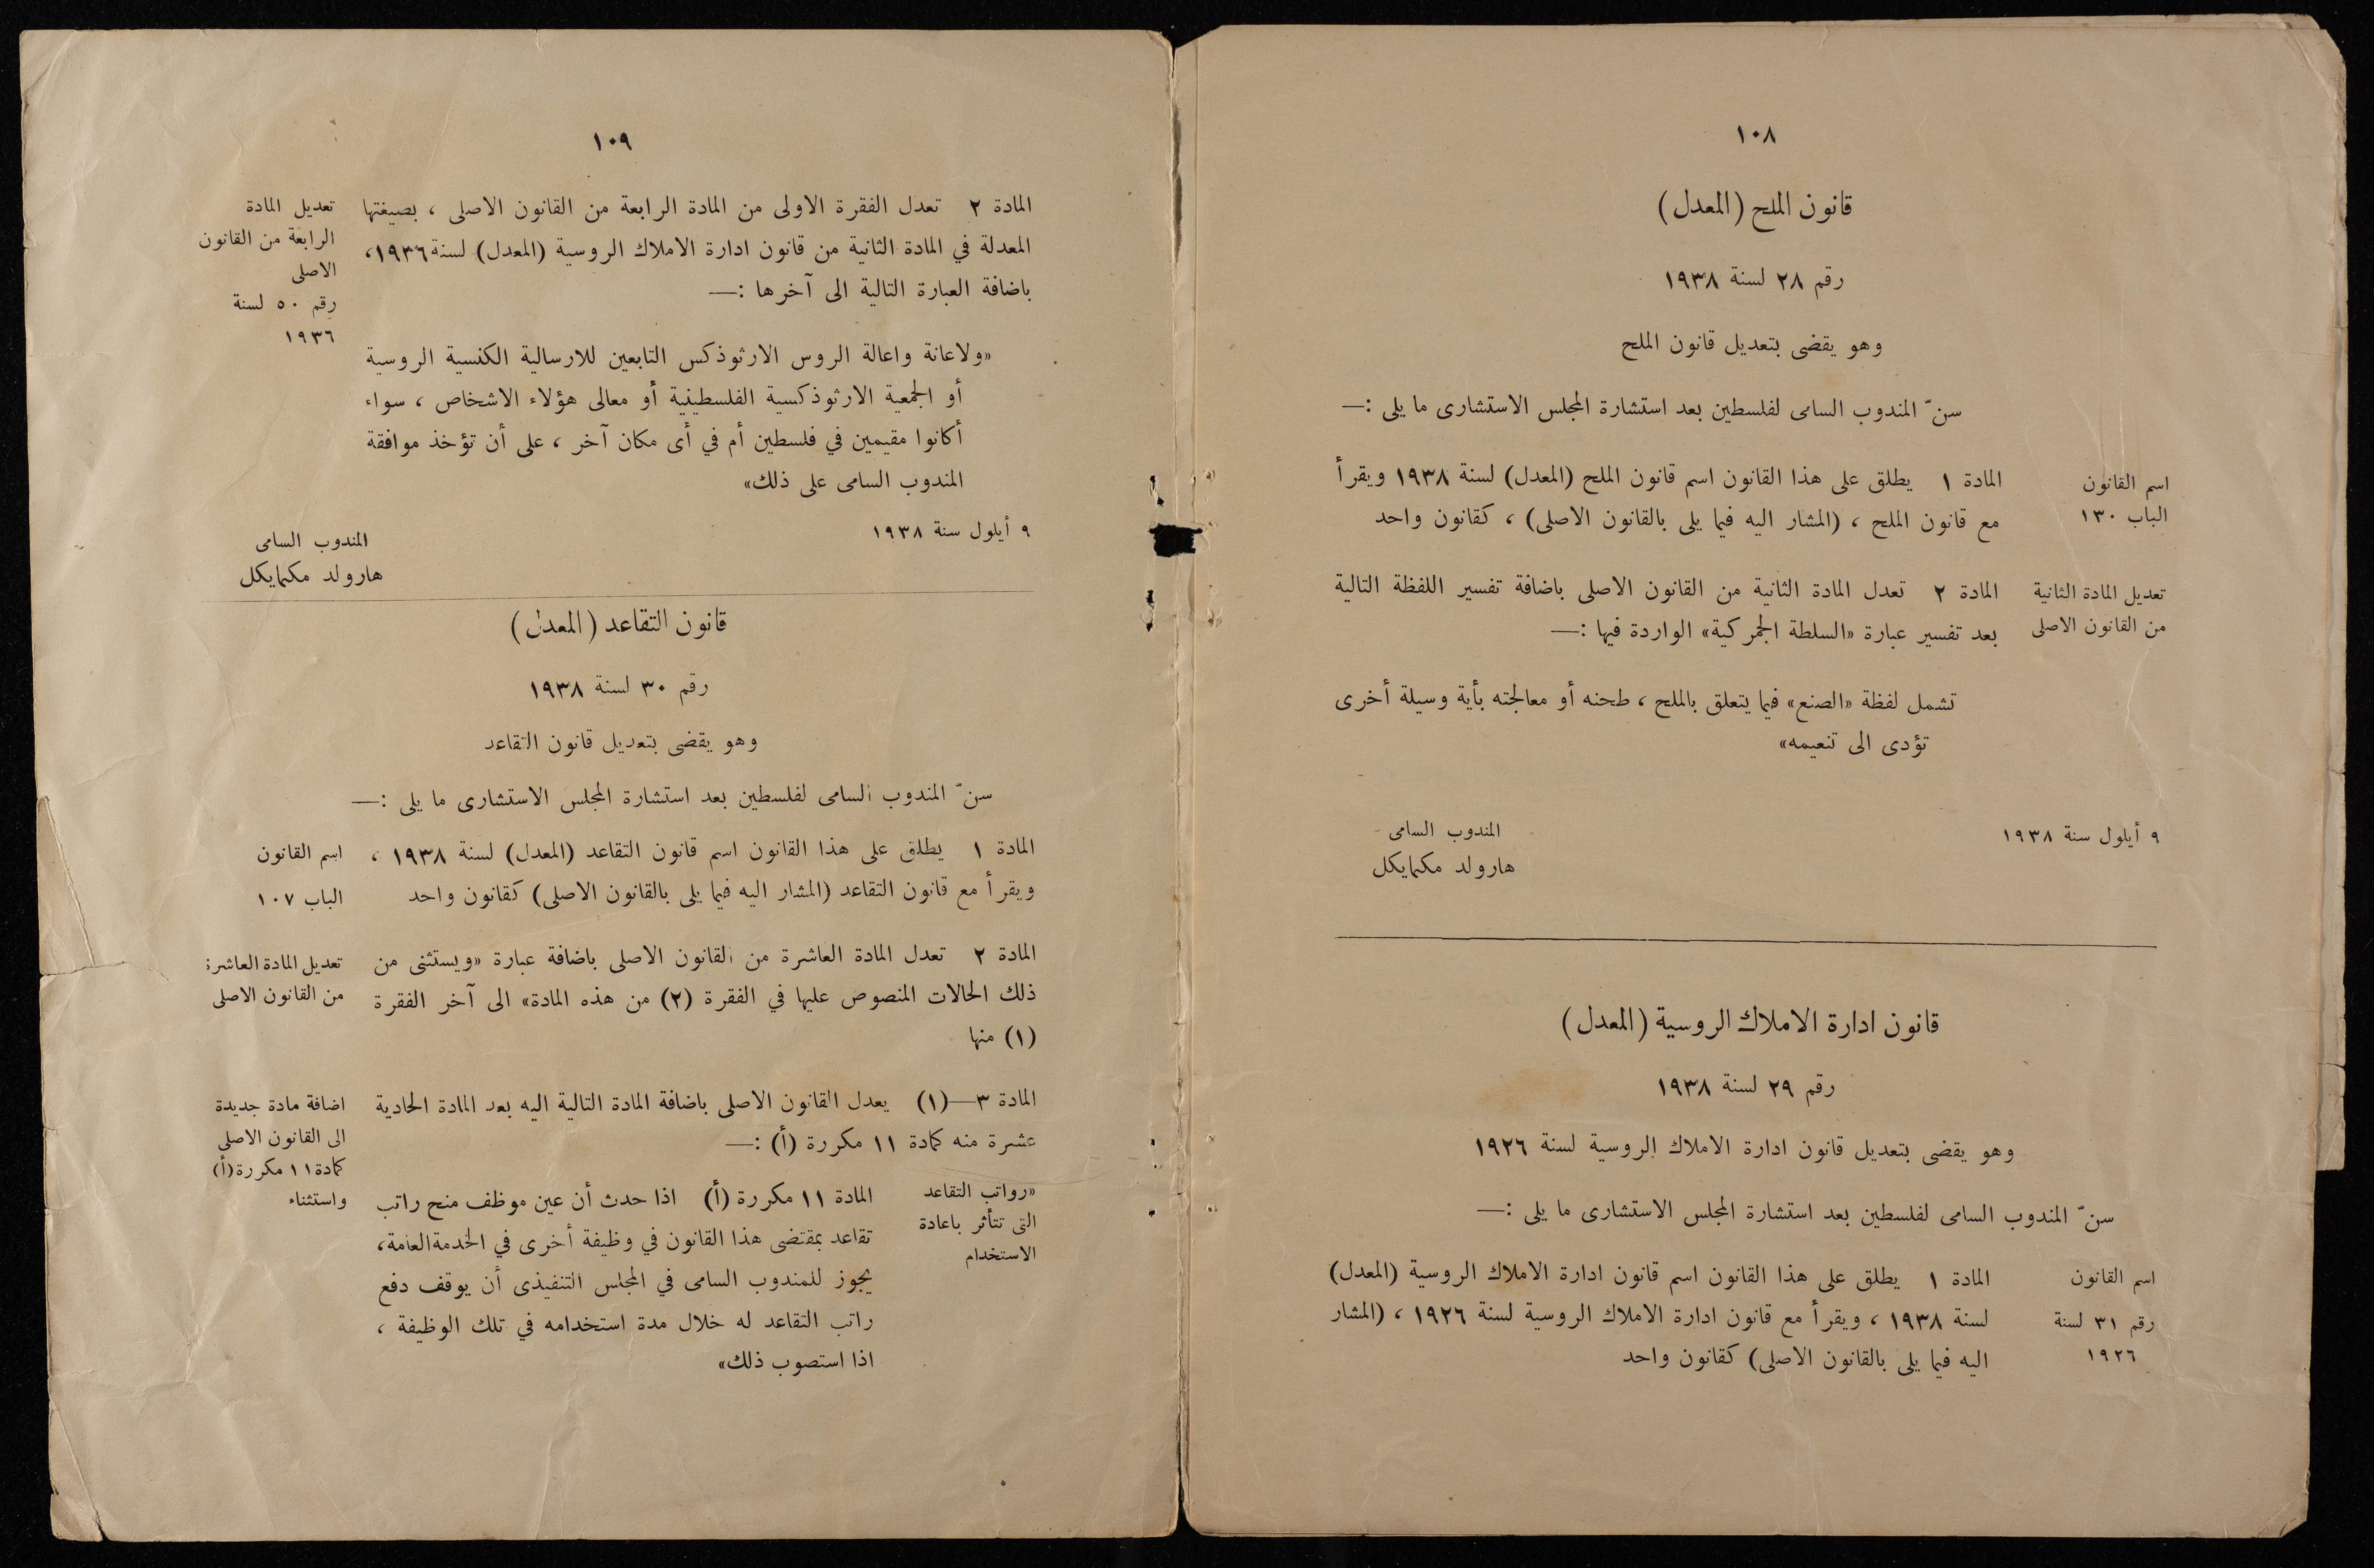 ١٠٨
قانون الملح (المعدل)
رقم ٢٨ لسنة ١٩٣٨
وهو يقضى بتعديل قانون الملح
سنّ المندوب السامى لفلسطين بعد استشارة المجلس الاستشارى ما يلى :—
اسم القانون
الباب ١٣٠
المادة ١ يطلق على هذا القانون اسم قانون الملح (المعدل) لسنة ١٩٣٨ ويقرأ
مع قانون الملح ، (المشار اليه فيما يلى بالقانون الاصلى) ، كقانون واحد
تعديل المادة الثانية
من القانون الاصلى
المادة ٢ تعدل المادة الثانية من القانون الاصلى باضافة تفسير اللفظة التالية
بعد تفسير عبارة «السلطة الجمركية» الواردة فيها :—
تشمل لفظة «الصنع» فيما يتعلق بالملح ، طحنه أو معالجته بأية وسيلة أخرى
تؤدى الى تنعيمه»
٩ أيلول سنة ١٩٣٨
المندوب السامى
هارولد مكمايكل
قانون ادارة الاملاك الروسية (المعدل)
رقم ٢٩ لسنة ١٩٣٨
وهو يقضى بتعديل قانون ادارة الاملاك الروسية لسنة ١٩٢٦
سنّ المندوب السامى لفلسطين بعد استشارة المجلس الاستشارى ما يلى :—
اسم القانون
رقم ٣١ لسنة
١٩٢٦
المادة ١ يطلق على هذا القانون اسم قانون ادارة الاملاك الروسية (المعدل)
لسنة ١٩٣٨ ، ويقرأ مع قانون ادارة الاملاك الروسية لسنة ١٩٢٦ ، (المشار
اليه فيما يلى بالقانون الاصلى) كقانون واحد
١٠٩
المادة ٢ تعدل الفقرة الاولى من المادة الرابعة من القانون الاصلى ، بصيغتها
المعدلة في المادة الثانية من قانون ادارة الاملاك الروسية (المعدل) لسنة ١٩٣٦،
باضافة العبارة التالية الى آخرها :—
تعديل المادة
الرابعة من القانون
الاصلى
رقم ٥٠ لسنة
١٩٣٦
«ولاعانة واعالة الروس الارثوذكس التابعين للارسالية الكنسية الروسية
أو الجمعية الارثوذكسية الفلسطينية أو معالى هؤلاء الاشخاص ، سواء
أكانوا مقيمين في فلسطين أم في أى مكان آخر ، على أن تؤخذ موافقة
المندوب السامى على ذلك»
٩ أيلول سنة ١٩٣٨
المندوب السامى
هارولد مكمايكل
قانون التقاعد (المعدل)
رقم ٣٠ لسنة ١٩٣٨
وهو يقضى بتعديل قانون التقاعد
سنّ المندوب السامى لفلسطين بعد استشارة المجلس الاستشارى ما يلى :—
المادة ١ يطلق على هذا القانون اسم قانون التقاعد (المعدل) لسنة ١٩٣٨ ،
ويقرأ مع قانون التقاعد (المشار اليه فيما يلى بالقانون الاصلى) كقانون واحد
اسم القانون
الباب ١٠٧
المادة ٢ تعدل المادة العاشرة من القانون الاصلى باضافة عبارة «ويستثنى من
ذلك الحالات المنصوص عليها في الفقرة (٢) من هذه المادة» الى آخر الفقرة
(١) منها
تعديل المادة العاشرة
من القانون الاصلى
المادة ٣—(١) يعدل القانون الاصلى باضافة المادة التالية اليه بعد المادة الحادية
عشرة منه كمادة ١١ مكررة (أ) :—
اضافة مادة جديدة
الى القانون الاصلى
كمادة ١١ مكررة (أ)
واستثناء
«رواتب التقاعد
التى تتأثر باعادة
الاستخدام
المادة ١١ مكررة (أ) اذا حدث أن عين موظف منح راتب
تقاعد بمقتضى هذا القانون في وظيفة أخرى في الخدمة العامة،
يجوز للمندوب السامى في المجلس التنفيذى أن يوقف دفع
راتب التقاعد له خلال مدة استخدامه في تلك الوظيفة ،
اذا استصوب ذلك»